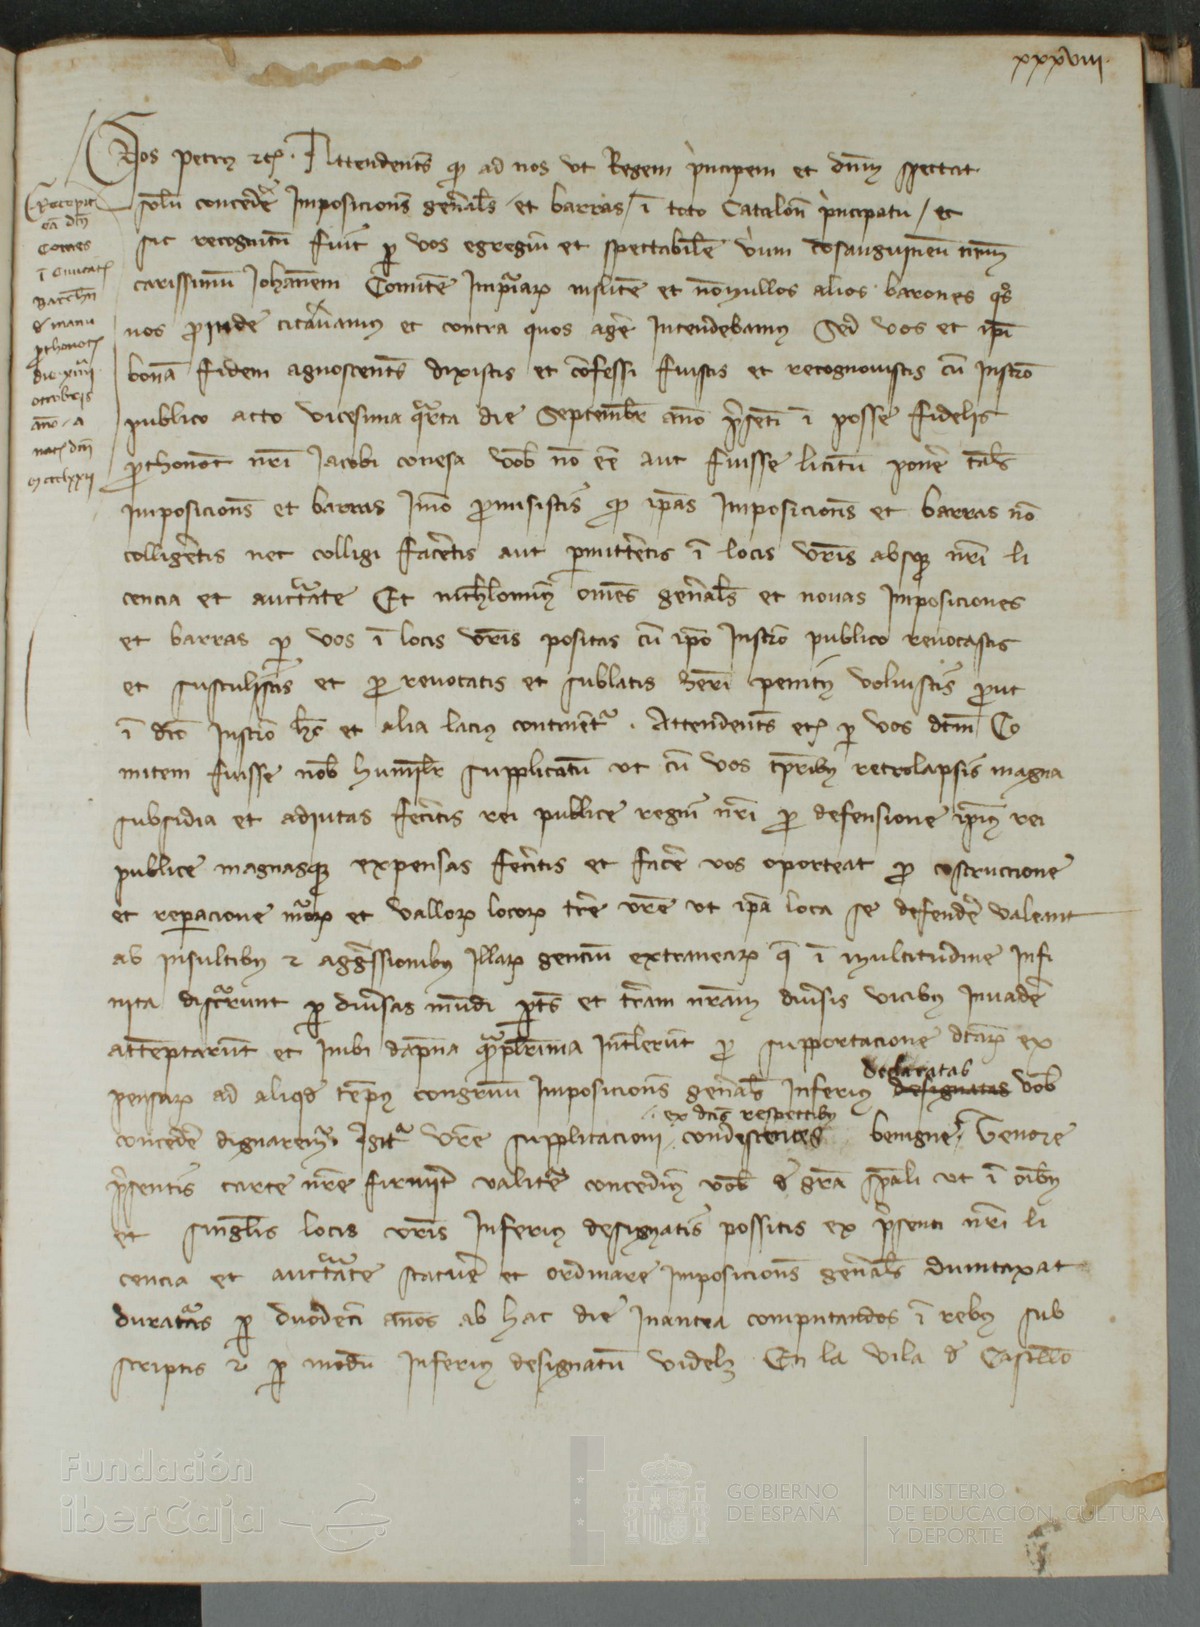 xxxviii
Nos Petrus etc. Attendentes qd ad nos ut Regem principem et dnm spectat
solu concedere Imposiciones generales et barras i toto Catalon principatu / et
sic recognitu fuit p vos egregiu et spectabile virum cosanguineu nrm
carissimu Johanem Comite Impiaru militem et nonullos alios barones qs
nos citavimus et contra quos agere Intendebamus Sed vos et ipi
bona fidem agnoscentes dixistis et confessi fuistis et recognovistis cu Instro
publico acto vicesima qrta die Septembr ano psenti i posse fidelis
pthonot nri Jacobi conesa vob no esse aut fuisse licitu ponere tales
Imposiciones et barras Imo promisistis qd ipas Imposiciones et barras no
colligeretis nec colligi faceretis aut pmitteretis i locis vris absq nri li
cencia et auctate Et nichilominus omnes generales et novas Imposiciones
et barras p vos i locis vris positas cu ipo Instro publico revocastis
et sustulistis et p revocatis et sublatis heri penitus voluistis put
i dco Instro hec et alia lacius continetur . Attendentes etc p vos dcm Co
mitem fuisse nob humilr supplicatu ut cu vos tpribus retrolapsis magna
subsidia et adiutas feceritis rei publice regni nri p defensione ipius rei
publice magnasq expensas feceritis et facere vos oporteat p costruccione
et reparacione muror et vallor locor tre vre ut ipa loca se defendere valeant
ab insultibus et aggressionibus Illar genciu extranear q i multitudine Infi
nita discurrunt p diversas mundi partes et tram nram diversis vicibus Invadere
atteptarunt et Inibi dapna qplurima Intulerunt p supportacione dcar ex
declaratas
pensar ad aliqd temps congruu Imposiciones generales Inferius designatas vob
ex dcis respectibus
concedere dignaremur Igitur vre supplicacioni condescendentes benigne Tenore
psentis carte nre firmiter valiture concedimus vob de gra spali ut i oibus
et singulis locis vris Inferius designatis possitis ex psenti nri li
cencia et auctate statuere et ordinare Imposiciones generales dumtaxat
duraturas p duodeci anos ab hac die Inantea computandos i rebus sub
scriptis et p modu Inferius designatu videlz En la vila de Castello
Recepit
dcus
Comes
i Civitate
Barchn
de manu
pthonot
die xiiii
octobris
ano a
nat dni
mccclxxii
Fundación
iberCaja
GOBIERNO
DE ESPAÑA
MINISTERIO
DE EDUCACIÓN, CULTURA
Y DEPORTE